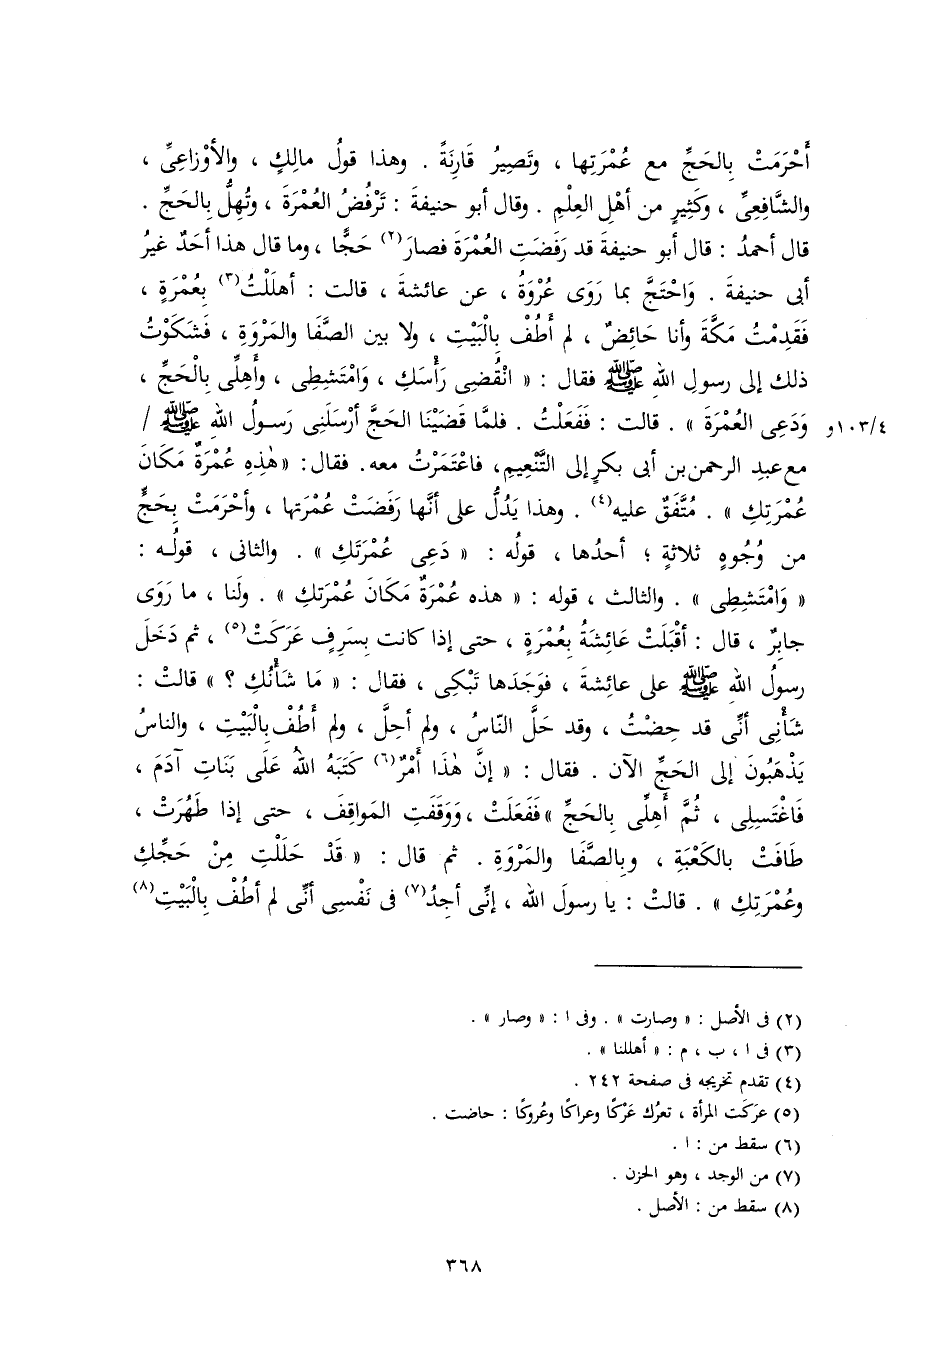 أَحْرَمَتْ بِالحَجِّ مع عُمْرَتِها ، وتَصِيرُ قَارِنَةً . وهذا قولُ مالِكٍ ، والأوْزاعِىِّ ،
والشَّافِعِىِّ ، وكَثِيرٍ من أهْلِ العِلْمِ . وقال أبو حنيفةَ : تَرْفُضُ العُمْرَةَ ، وتُهِلُّ بِالحَجِّ .
قال أحمدُ : قال أبو حنيفةَ قد رَفَضَتِ العُمْرَةَ فصارَ(٢) حَجًّا ، وما قال هذا أحَدٌ غيرُ
أبى حنيفةَ . وَاحْتَجَّ بما رَوَى عُرْوَةُ ، عن عائشةَ ، قالت : أهلَلْتُ(٣) بِعُمْرَةٍ ،
فَقَدِمْتُ مَكَّةَ وأنا حَائِضٌ ، لم أَطُفْ بِالْبَيْتِ ، ولا بين الصَّفَا والمَرْوَةِ ، فَشَكَوْتُ
ذلك إلى رسولِ اللهِ ﷺ فقال : « انْقُضِى رَأْسَكِ ، وَامْتَشِطِى ، وأَهِلِّى بِالْحَجِّ ،
١٠٣/٤و وَدَعِى العُمْرَةَ » . قالت : فَفَعَلْتُ . فلمَّا قَضَيْنَا الحَجَّ أرْسَلَنِى رَسولُ اللهِ ﷺ /
مع عبدِ الرحمنِ بن أبى بكرٍ إلى التَّنْعِيمِ، فاعْتَمَرْتُ معه. فقال: «هٰذِهِ عُمْرَةٌ مَكَانَ
عُمْرَتِكِ » . مُتَّفَقٌ عليه(٤) . وهذا يَدُلُّ على أنَّها رَفَضَتْ عُمْرَتها ، وأحْرَمَتْ بِحَجٍّ
من وُجُوهٍ ثلاثةٍ ؛ أحدُها ، قولُه : « دَعِى عُمْرَتَكِ » . والثانى ، قولُه :
« وَامْتَشِطِى » . والثالث ، قوله : « هذه عُمْرَةٌ مَكَانَ عُمْرَتكِ » . ولَنا ، ما رَوَى
جابِرٌ ، قال : أقْبَلَتْ عَائِشَةُ بِعُمْرَةٍ ، حتى إذا كانت بِسَرِفٍ عَرَكَتْ(٥) ، ثم دَخَلَ
رسولُ اللهِ ﷺ على عائشةَ ، فوَجَدَها تَبْكِى ، فقال : « مَا شَأْنُكِ ؟ » قالتْ :
شَأْنِى أنِّى قد حِضْتُ ، وقد حَلَّ النّاسُ ، ولم أحِلَّ ، ولم أَطُفْ بِالْبَيْتِ ، والناسُ
يَذْهَبُونَ إلى الحَجِّ الآن . فقال : « إنَّ هٰذَا أَمْرٌ(٦) كَتَبَهُ اللهُ عَلَى بَنَاتِ آدَمَ ،
فَاغْتَسِلِى ، ثُمَّ أَهِلِّى بِالحَجِّ »فَفَعَلَتْ ،وَوَقَفَتِ المَواقِفَ ، حتى إذا طَهُرَتْ ،
طَافَتْ بالكَعْبَةِ ، وبِالصَّفَا والمَرْوَةِ . ثم قال : « قَدْ حَلَلْتِ مِنْ حَجِّكِ
وعُمْرَتِكِ » . قالتْ : يا رسولَ الله ، إنِّى أجِدُ(٧) فى نَفْسِى أنِّى لم أطُفْ بِالْبَيْتِ(٨)
(٢) فى الأصل : « وصارت » . وفى ا : « وصار » .
(٣) فى ا ، ب ، م : « أهللنا » .
(٤) تقدم تخريجه فى صفحة ٢٤٢ .
(٥) عرَكَت المرأة ، تعرُك عَرْكًا وعراكًا وعُروكًا : حاضت .
(٦) سقط من : ا .
(٧) من الوجد ، وهو الحزن .
(٨) سقط من : الأصل .
٣٦٨